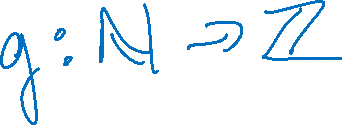 g : ℕ → ℤ